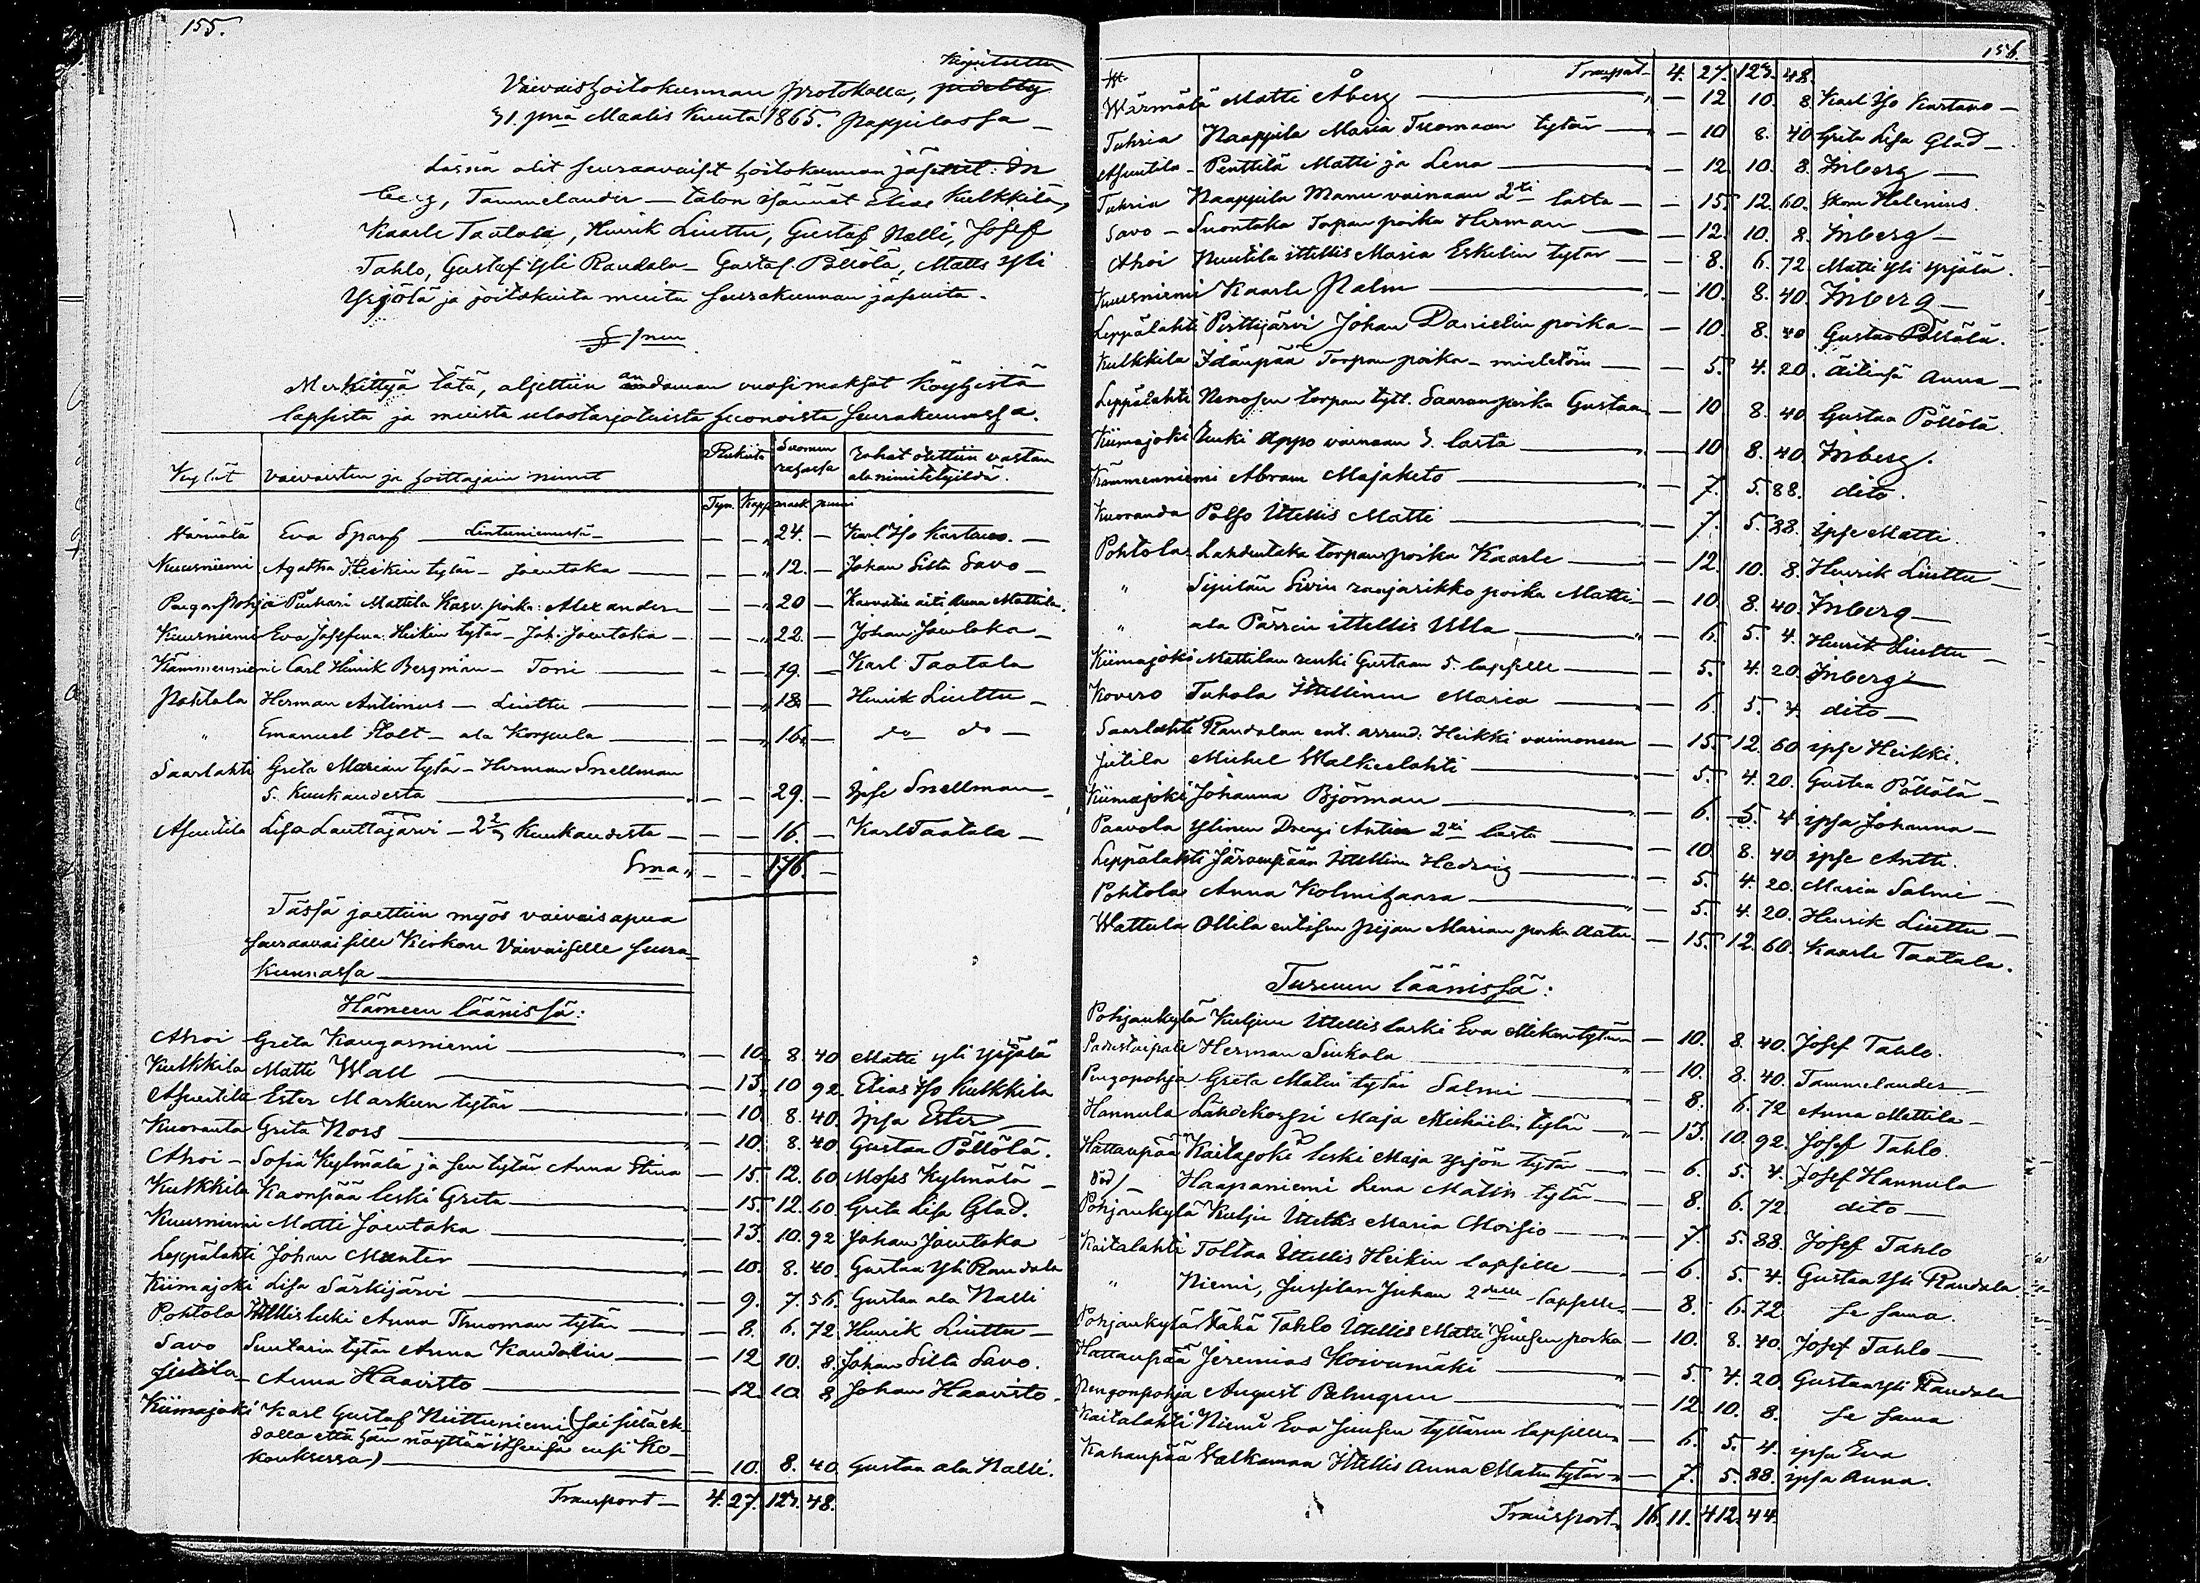 155.
Kirjoitettu
Vaivaishoitokunnan protokolla, pidetty
31. pnä Maalis Kuuta 1865. Pappilassa —
Läsnä olit seuraavaiset hoitokunnan jäsenet: In
berg, Tammelander — talon isännät Elias Kulkkila,
Kaarle Taatala, Hinrik Liuttu, Gustaf Nalli, Josef
Tahlo, Gustaf yli Raudala — Gustaf Pöllölä, Matts yli
Yrjölä ja joitakuita muita seurakunnan jäseniä.
§ 1nen
Merkittyä tätä, aljettiin andaman vuosimaksot köyhistä
lapsista ja muista ulostarjotuista huonoista seurakunnassa.
Kylät | vaivaisten ja hoittajain nimet | Rukiita | Suomen rahassa | rahat otettiin vastan ala nimitetyildä.
Tyn. | Kapp | mark | penni
Härmälä Eva Sparf — Lintuniemestä — — — 24. — Karl Iso Kartano. —
Kuusniemi Agatha Heikin tytär — Joentaka — — — 12. — Johan Silta Savo —
Pengonpohja Puihari Mattila Kasv. poika: Alexander — — — 20 — Kasvatus äiti Anna Mattila.
Kuusniemi Eva Josefina Heikin tytär — Joh. Joentaka — — — 22. — Johan Joentaka —
Kämmenniemi Carl Hinrik Bergman — Toni — — — 19. — Karl Taatala
Pohtola Herman Antinus — Liuttu — — — 18. — Henrik Liuttu —
" Emanuel Stolt — ala Korpula — — — 16. — do do —
Saarlahti Greta Marian tytär — Herman Snellman
5. Kuukaudesta — — — 29. — Ipse Snellman —
Asuntila Lisa Lauttajärvi — 2 2/3 Kuukaudesta — — — 16. — Karl Taatala —
Sma „ — — 176. —
Tässä jaettiin myös vaivaisapua
seuraavaisille Kirkon Vaivaiselle seura-
kunnassa
Hämeen läänissä:
Ahoi Greta Kangasniemi — — 10. 8. 40 Matti yli Yrjölä
Kulkkila Matti Wall — — 13. 10 92 Elias Iso Kulkkila
Asuntilla Ester Markun tytär — — 10. 8. 40 Ipsa Ester —
Kuoranta Greta Nors — — 10. 8. 40 Gustaa Pöllölä.
Ahoi — Sofia Kylmälä ja sen tytär Anna Stina — 15. 12. 60 Moses Kylmälä —
Kulkkila Kaonpää leski Greta — — 15. 12. 60 Greta Lisa Glad.
Kuusniemi Matti Joentaka — — 13. 10. 92 Johan Joentaka
Leppälahti Johan Manter — — 10. 8. 40. Gustaa yli Raudala
Kiimajoki Lisa Särkijärvi — — 9. 7. 56. Gustaa ala Nalli
Pohtola Ittellis leski Anna Thuoman tytär — — 8. 6. 72 Hinrik Liuttu —
Savo Suutarin tytär Anna Kaudolin — — 12 10. 8. Johan Silta Savo.
Jutila — Anna Haavisto — — 12. 10. 8 Johan Haavisto.
Kiimajoki Karl Gustaf Niittuniemi (sai sillä eh-
dolla että hän näyttää itsensä ensi Ko-
kouksessa) — — 10. 8. 40 Gustaa ala Nalli.
Transport — 4. 27. 127. 48.
156.
Transport — 4. 27. 127. 48.
Wärmälä Matti Åberg — — 12 10. 8 Karl Iso Kartano —
Tuhria Naappila Maria Tuomaan tytär — — 10 8. 40 Greta Lisa Glad —
Asuntila — Penttilä Matti ja Lena — — 12. 10. 8. Inberg —
Tuhria Naappila Manu vainaan 2ti lasta — — 15. 12. 60. Skom. Helenius.
Savo — Suontaka Torpan poika Herman — — 12. 10. 8. Inberg —
Ahoi Nuutila ittellis Maria Eskelin tytär — — 8. 6. 72 Matti yli yrjölä.
Kuusniemi Kaarle Palm — — 10. 8. 40. Inberg —
Leppälahti Perttijärvi Johan Danielin poika — — 10. 8. 40 Gustaa Pöllölä.
Kulkkila Idänpää Torpan poika — mieletöin — — 5. 4. 20. äitinsä Anna —
Leppälahti Nenosen torpan tytt. Saaran poika Gustaa — 10 8. 40 Gustaa Pöllölä.
Kiimajoki Renki Appo vainaan 3. lasta — — 10 8. 40 Inberg.
Kämmenniemi Abram Majaketo — — 7. 5. 88. dito.
Kuoranda Polso Ittellis Matti — — 7. 5. 88. ipse Matti.
Pohtola Lahdentaka torpan poika Kaarle — — 12. 10. 8. Henrik Liuttu —
" Sipilän Sivin raajarikko poika Matti — 10. 8. 40. Inberg —
" ala Pärrin ittellis Ulla — — 6. 5. 4. Henrik Liuttu —
Kiimajoki Mattilan renki Gustaan 5. lapselle — — 5. 4. 20 Inberg —
Kovero Tuhola Ittellinen Maria — — 6. 5. 4. dito —
Saarlahti Raudalan ent. arrend: Heikki vaimoneen — 15. 12. 60 ipse Heikki.
Jutila Michel Walkeelahti — — 5. 4. 20. Gustaa Pöllölä —
Kiimajoki Johanna Björman — — 6. 5. 4 ipsa Johanna —
Paavola Ylinen Drengi Antin 2xi lasta — 10. 8. 40 ipse Antti.
Leppälahti Järvenpään Ittellin Hedvig — — 5. 4. 20. Maria Salmi —
Pohtola Anna Kolmihaara — — 5. 4. 20. Henrik Liuttu —
Wattula Ollila entisen piijan Marian poika Aatu. — 15. 12. 60. Kaarle Taatala.
Turuun läänissä:
Pohjankylä Kuljun Ittellis leski Eva Mikon tytär — — 10. 8. 40. Josef Tahlo.
Padustaipale Herman Siukola — — 10. 8. 40. Tammelander —
Pengopohja Greta Matin tytär Salmi — — 8. 6. 72 Anna Mattila —
Hannula Lähdekorpi Maja Mickiilin tytär — — 13. 10. 92. Josef Tahlo.
Hattanpää Kaitajoki leski Maja Yrjön tytär — — 6. 5. 4. Josef Hannula
Haapaniemi Lena Matin tytär — — 8. 6. 72. dito —
Pohjankylä Kulju Ittellis Maria Moisio — — 7. 5. 88. Josef Tahlo
Kaitalahti Toltaa Ittellis Heikin lapselle — — 6. 5. 4. Gustaa yli Raudala.
" Niemi, Jussilan Juhan 2delle lapselle — 8. 6. 72 se sama.
Pohjankylä Vähä Tahlo Ittellis Matti Juusen poika — 10. 8. 40. Josef Tahlo —
Hattanpää Jeremias Koivumäki — — 5. 4. 20. Gustaa yli Raudala
Pengonpohja August Palmgren — — 12. 10. 8. se sama
Kaitalahti Niemi Eva Juusen tyttären lapsille — 6. 5. 4. ipsa Eva
Kahanpää Valkaman Ittellis Anna Matin tytär — — 7. 5. 88. ipsa Anna.
Transport — 16. 11. 412. 44.